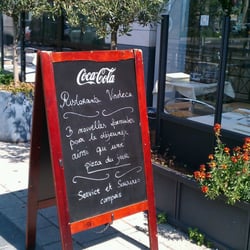 Coca-Cola
Ristorante Vinoteca
3 nouvelles formules
pour le déjeuner
ainsi qu'une
pizza du jour
Service et Sourire
compris